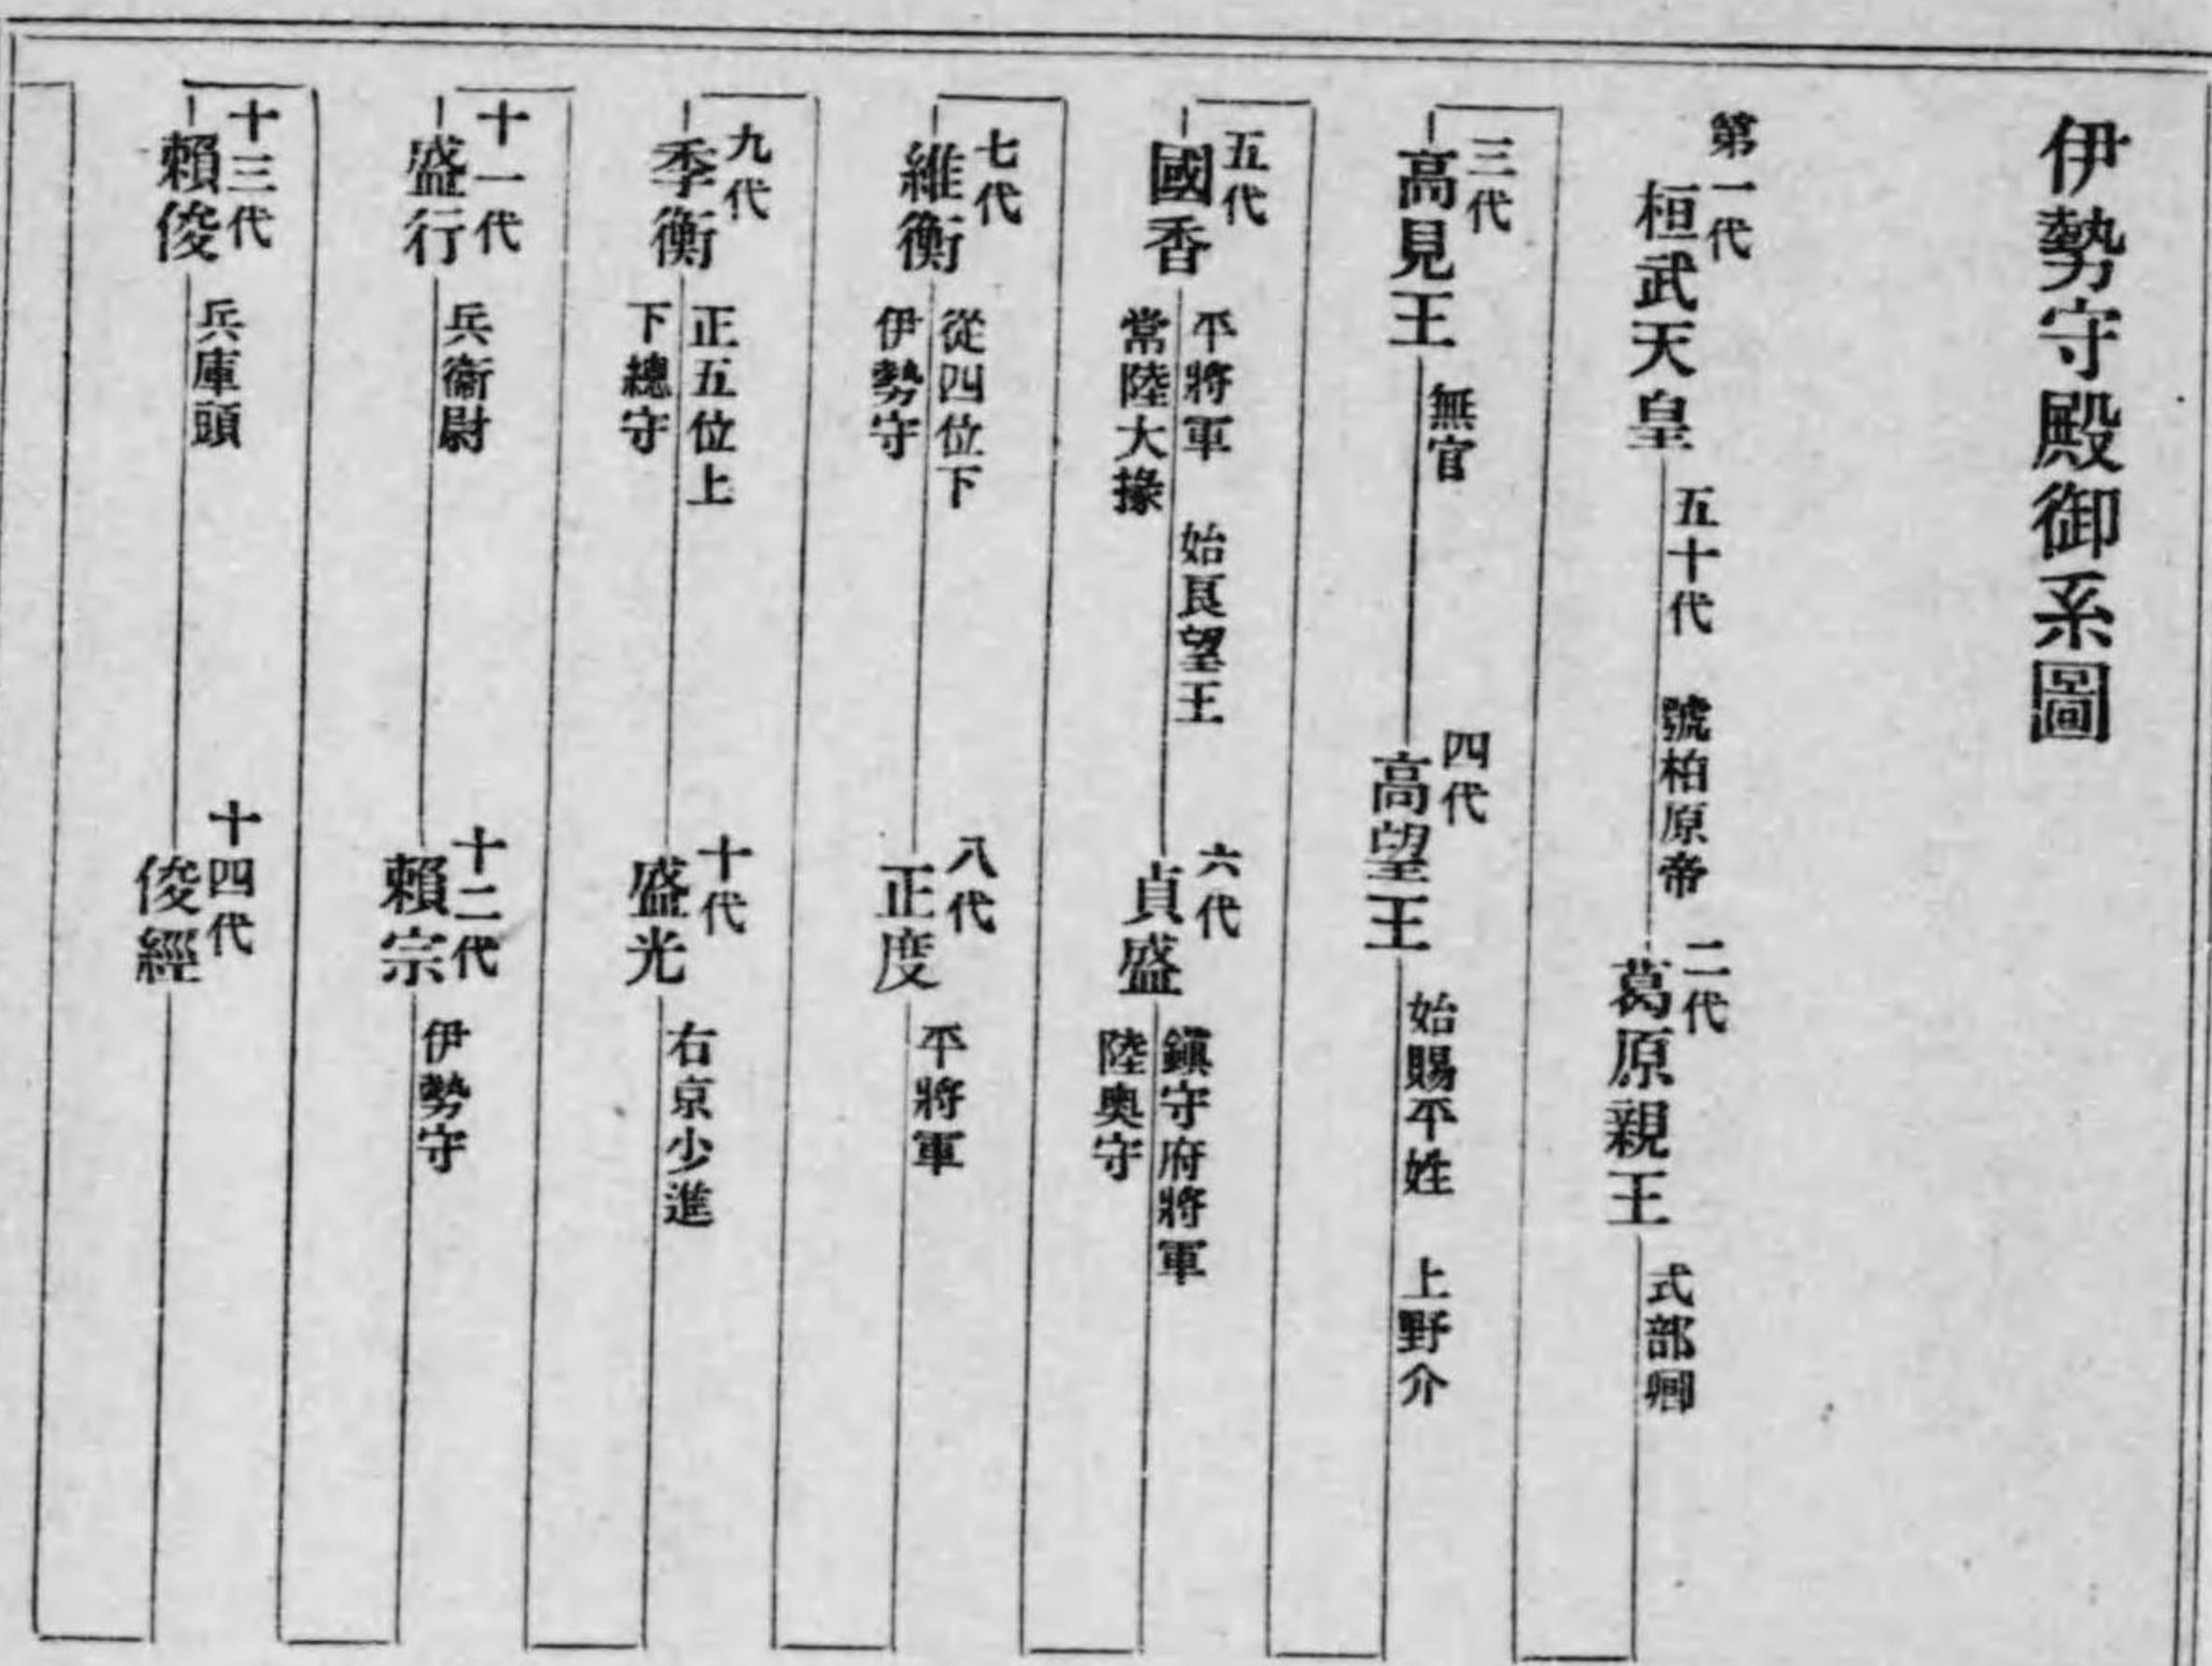 伊勢守殿御系圖
第一代
桓武天皇
五十代 號柏原帝
二代
葛原親王
式部卿
三代
高見王
無官
四代
高望王
始賜平姓 上野介
五代
國香
平將軍 始良望王
常陸大掾
六代
貞盛
鎭守府將軍
陸奧守
七代
維衡
從四位下
伊勢守
八代
正度
平將軍
九代
季衡
正五位上
下總守
十代
盛光
右京少進
十一代
盛行
兵衞尉
十二代
賴宗
伊勢守
十三代
賴俊
兵庫頭
十四代
俊經